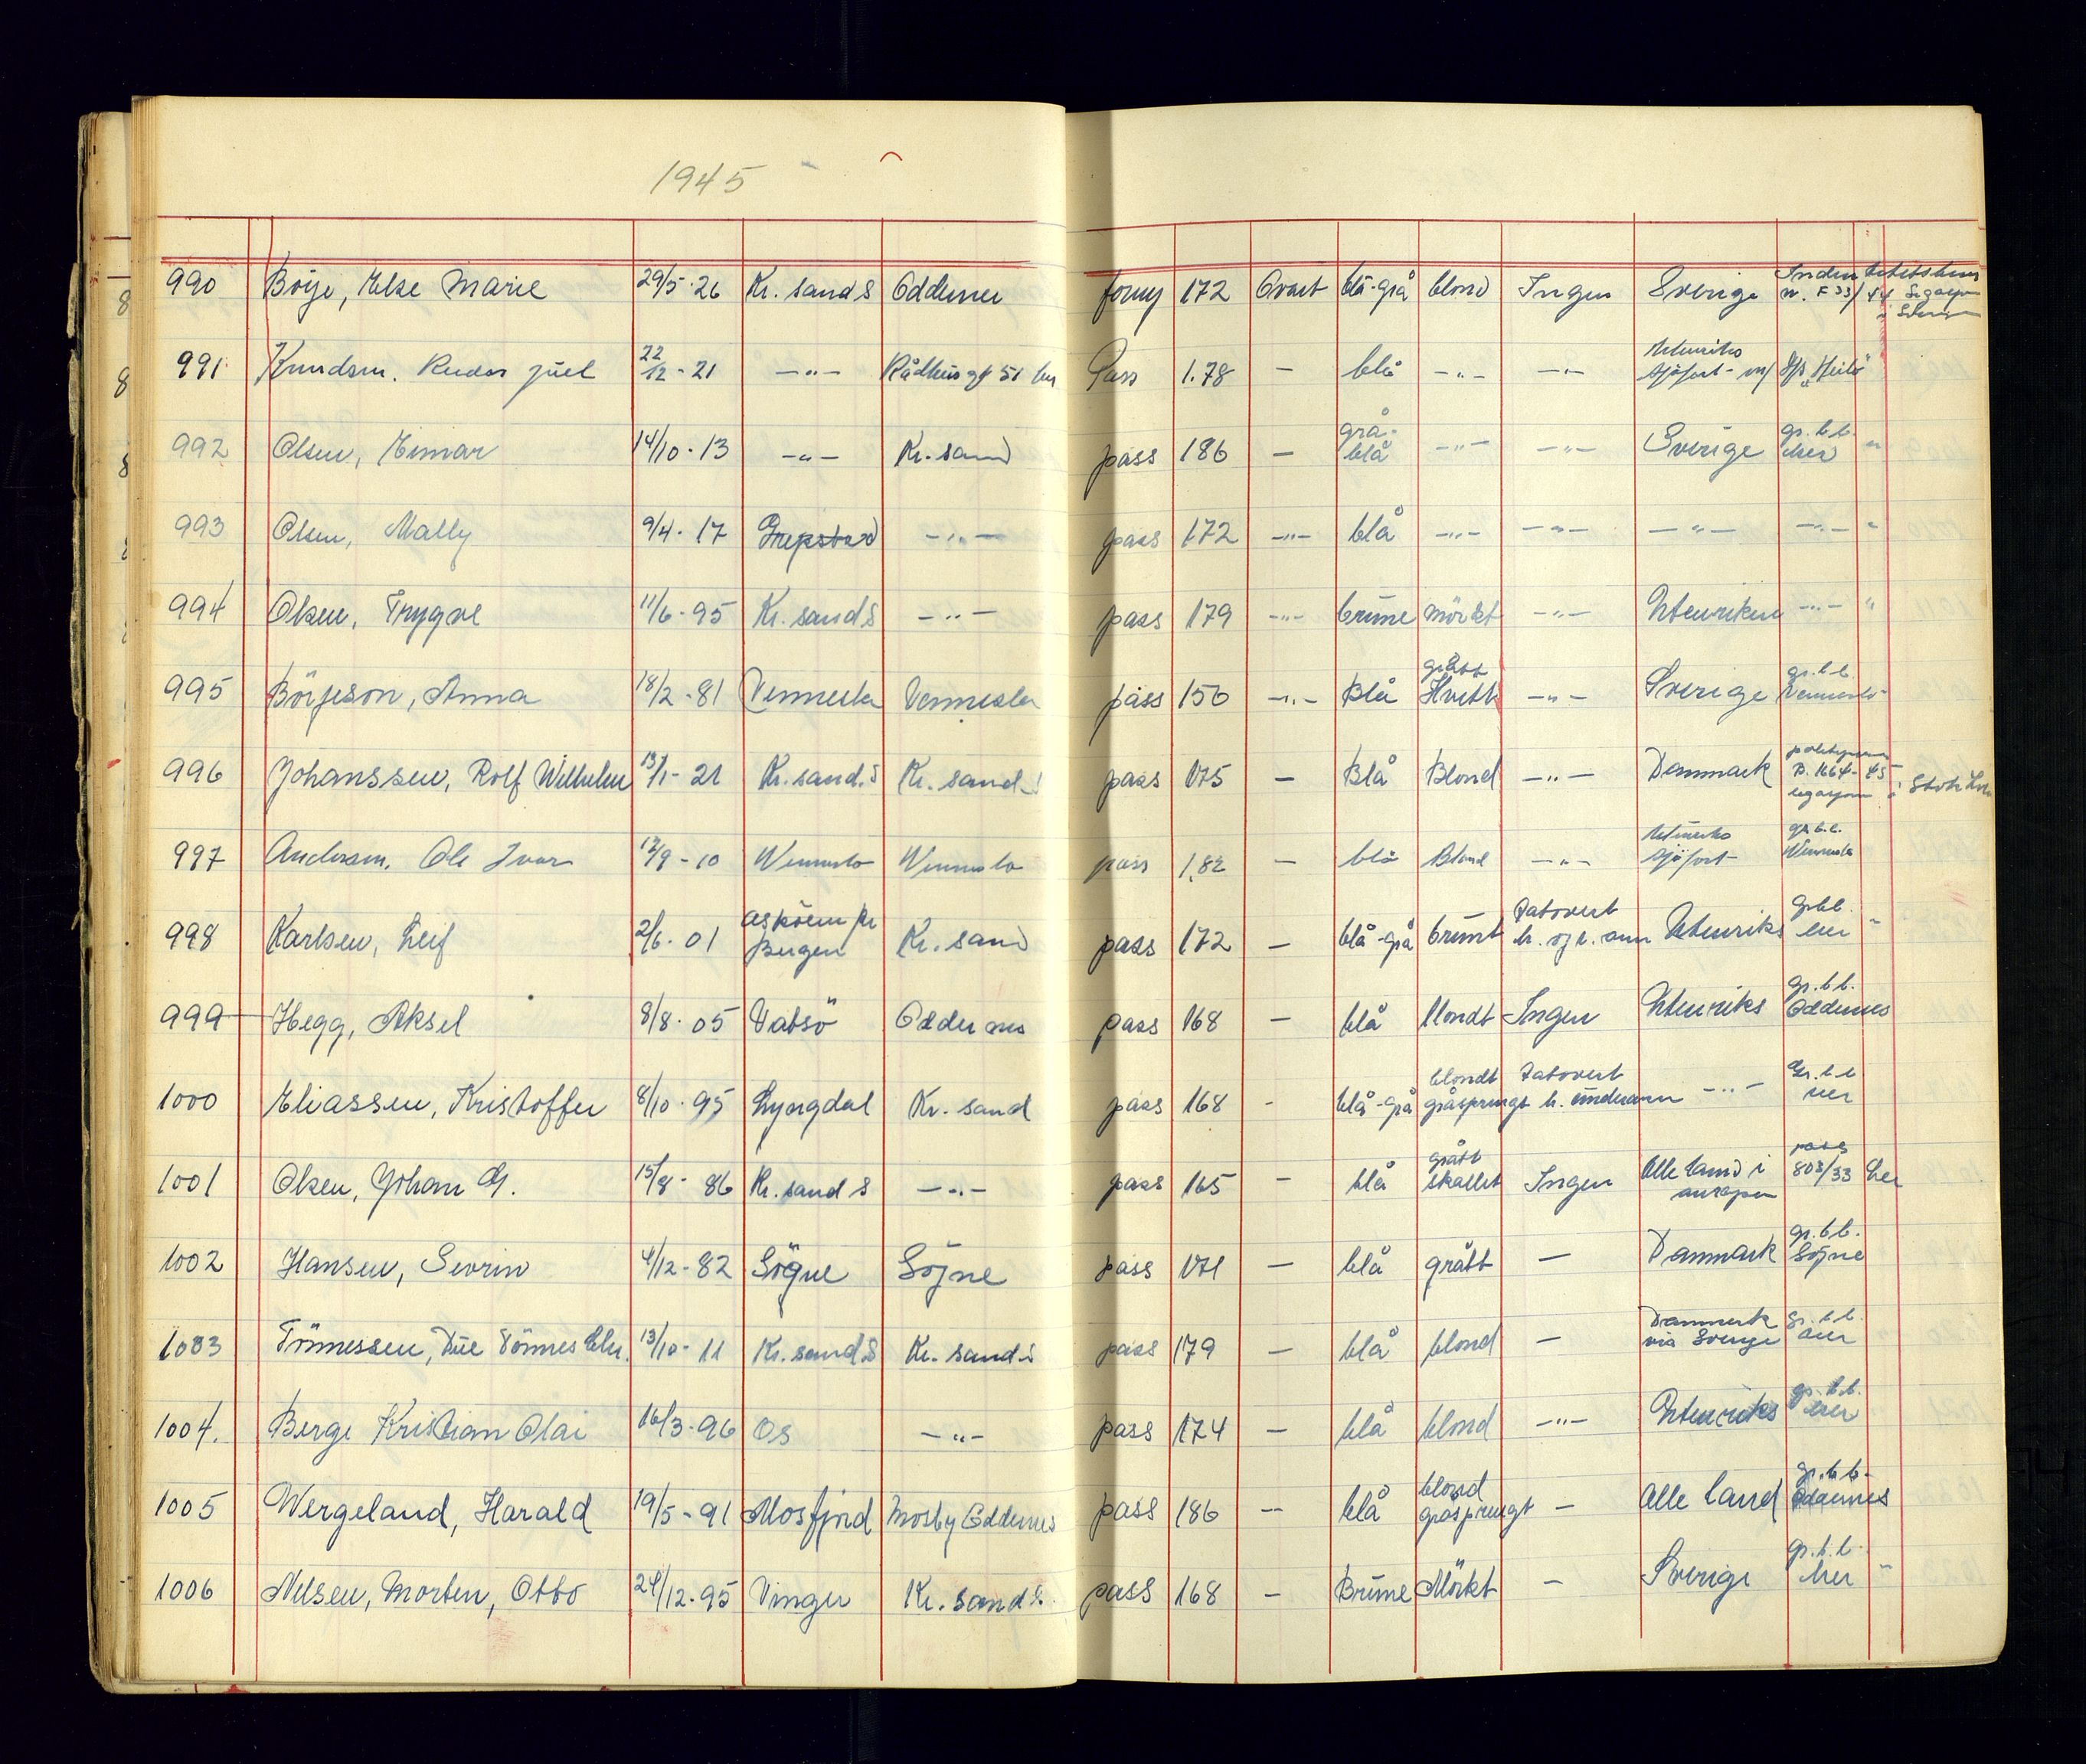 1945
990 Börje, Else Marie 29/5-26 Kr. sand S Oddernes forny 172 Ovart blå-grå blond Ingen Sverige
nr. F 33/44
991 Knudsen. Reidar Juel 22/12-21 -"- Rådhusgt 51 her Pass 1.78 - blå -"- -"- Utenriks sjöfart
992 Olsen, Einar 14/10-13 -"- Kr. sand pass 186 - grå-blå -"- -"- Sverige gr.b.b. her "
993 Olsen, Mally 9/4-17 Grepstad -"- pass 172 -"- blå -"- -"- -"- -"- "
994 Olsen, Trygve 11/6-95 Kr. sand S -"- pass 179 -"- brune mörkt -"- Utenriken -"- "
995 Börjeson, Anna 18/2-81 Vennesla Vennesla pass 150 -"- Blå grått Hvitt -"- Sverige gr.b.b. Vennesla
996 Johanssen, Rolf Wilhelm 13/1-21 Kr. sand. S Kr. sand. S pass 175 - Blå Blond -"- Danmark
B. 1664-45
997 Andersen. Ole Ivar 12/9-10 Wennesla Wennesla pass 1.82 - blå Blond -"- Utenriks sjöfart gr.b.b. Wennesla
998 Karlsen, Leif 2/6-01 Asköen pr Bergen Kr. sand pass 172 - blå-grå brunt Tatovert h. og v. arm Utenriks gr.b.b. her "
999 Hegg, Aksel 8/8-05 Vatsö Oddernes pass 168 - blå blondt Ingen Utenriks gr.b.b. Oddernes
1000 Eliassen, Kristoffer 8/10-95 Lyngdal Kr. sand pass 168 - blå-grå blondt gråsprengt Tatovert h. underarm -"- Gr.b.b her
1001 Olsen, Johan G. 15/8-86 Kr. sand S -"- pass 165 - blå grått skallet Ingen Alle land i europa pass 803/33 her
1002 Hansen, Sevrin 4/12-82 Sögne Sögne pass 171 - blå grått - Danmark gr.b.b. Sögne
1003 Tönnessen, Due Tönnes Chr. 13/10-11 Kr. sand. S Kr. sand. S pass 179 - blå blond - Danmark via Sverige gr.b.b. her
1004. Berge Kristian Olai 16/3-96 Os -"- pass 174 - blå blond -"- Utenriks gr.b.b. her
1005 Wergeland, Harald 19/5-91 Mosfjord Mosby Oddernes pass 186 - blå blond gråsprengt - Alle land gr.b.b. Oddernes
1006 Nilsen, Morten, Otto 24/12-95 Vinger Kr. sand S. pass 168 - Brune Mörkt - Sverige gr.b.b. her "